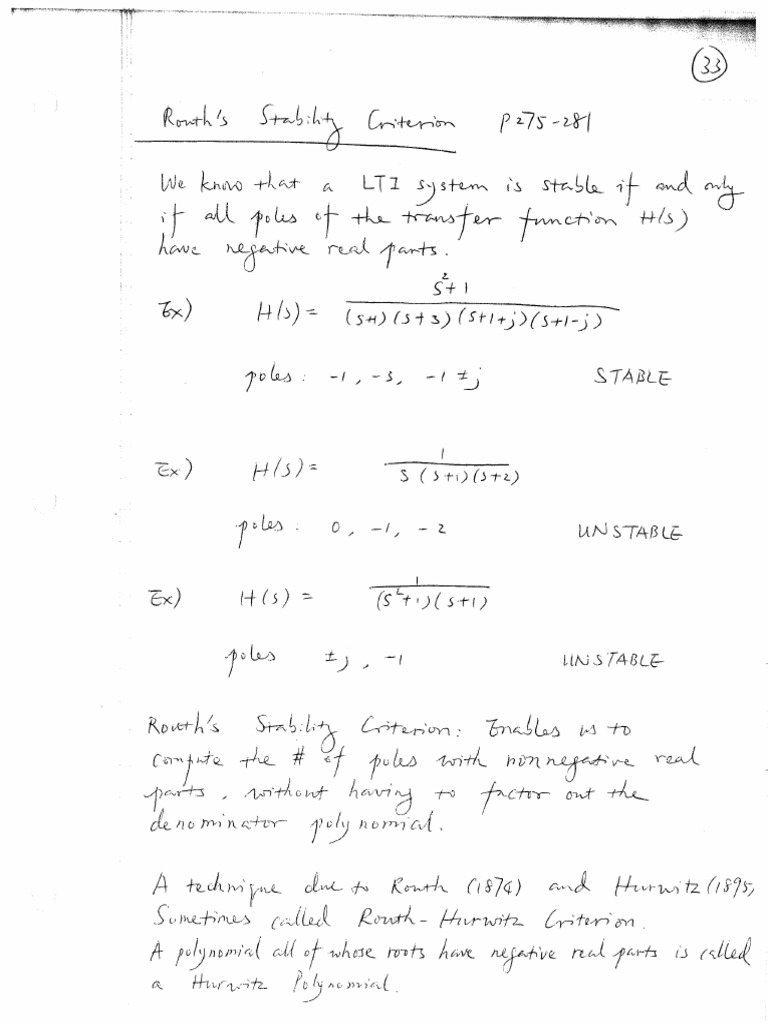 33
Routh's Stability Criterion P275-281
We know that a LTI system is stable if and only
if all poles of the transfer function H(s)
have negative real parts.
Ex) H(s) = s²+1 / (s+1)(s+3)(s+1+j)(s+1-j)
poles: -1, -3, -1 ±j STABLE
Ex) H(s) = 1 / s(s+1)(s+2)
poles: 0, -1, -2 UNSTABLE
Ex) H(s) = 1 / (s²+1)(s+1)
poles ±j, -1 UNSTABLE
Routh's Stability Criterion: Enables us to
compute the # of poles with nonnegative real
parts, without having to factor out the
denominator polynomial.
A technique due to Routh (1874) and Hurwitz (1895,
Sometimes called Routh-Hurwitz Criterion.
A polynomial all of whose roots have negative real parts is called
a Hurwitz Polynomial.